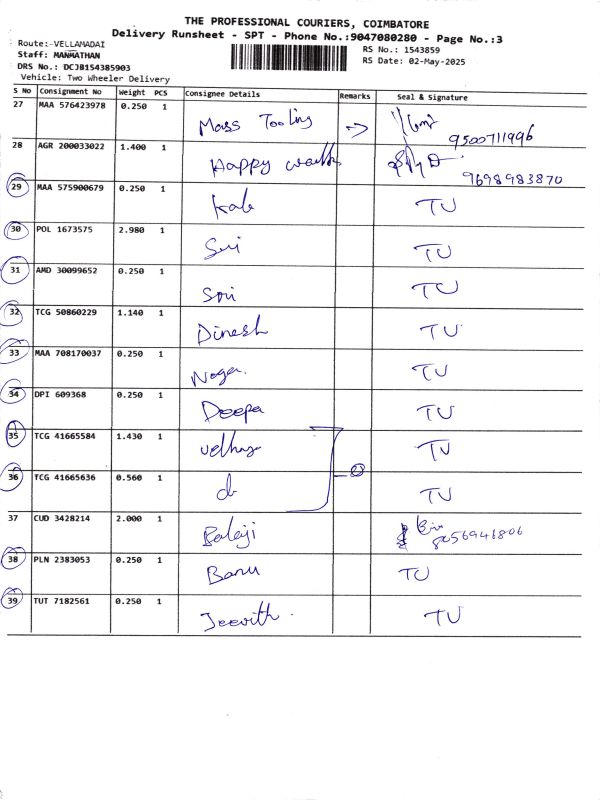 THE PROFESSIONAL COURIERS, COIMBATORE
Delivery Runsheet - SPT - Phone No.:9047080280 - Page No.:3
Route:-VELLAMADAI
Staff: MANMATHAN
DRS No.: DCJB154385903
Vehicle: Two Wheeler Delivery
RS No.: 1543859
RS Date: 02-May-2025
S No Consignment No Weight PCS Consignee Details Remarks Seal & Signature
27 MAA 576423978 0.250 1 Mass Tooling
9500711996
28 AGR 200033022 1.400 1 Happy
9698983870
29 MAA 575900679 0.250 1 TU
30 POL 1673575 2.980 1 Sri TU
31 AMD 30099652 0.250 1 Sri TU
32 TCG 50860229 1.140 1 Dinesh TU
33 MAA 708170037 0.250 1 Naga TU
34 DPI 609368 0.250 1 Deepa TU
35 TCG 41665584 1.430 1 TU
36 TCG 41665636 0.560 1 TU
37 CUD 3428214 2.000 1 Balaji
8056946806
38 PLN 2383053 0.250 1 Banu TU
39 TUT 7182561 0.250 1 Jeevith TU